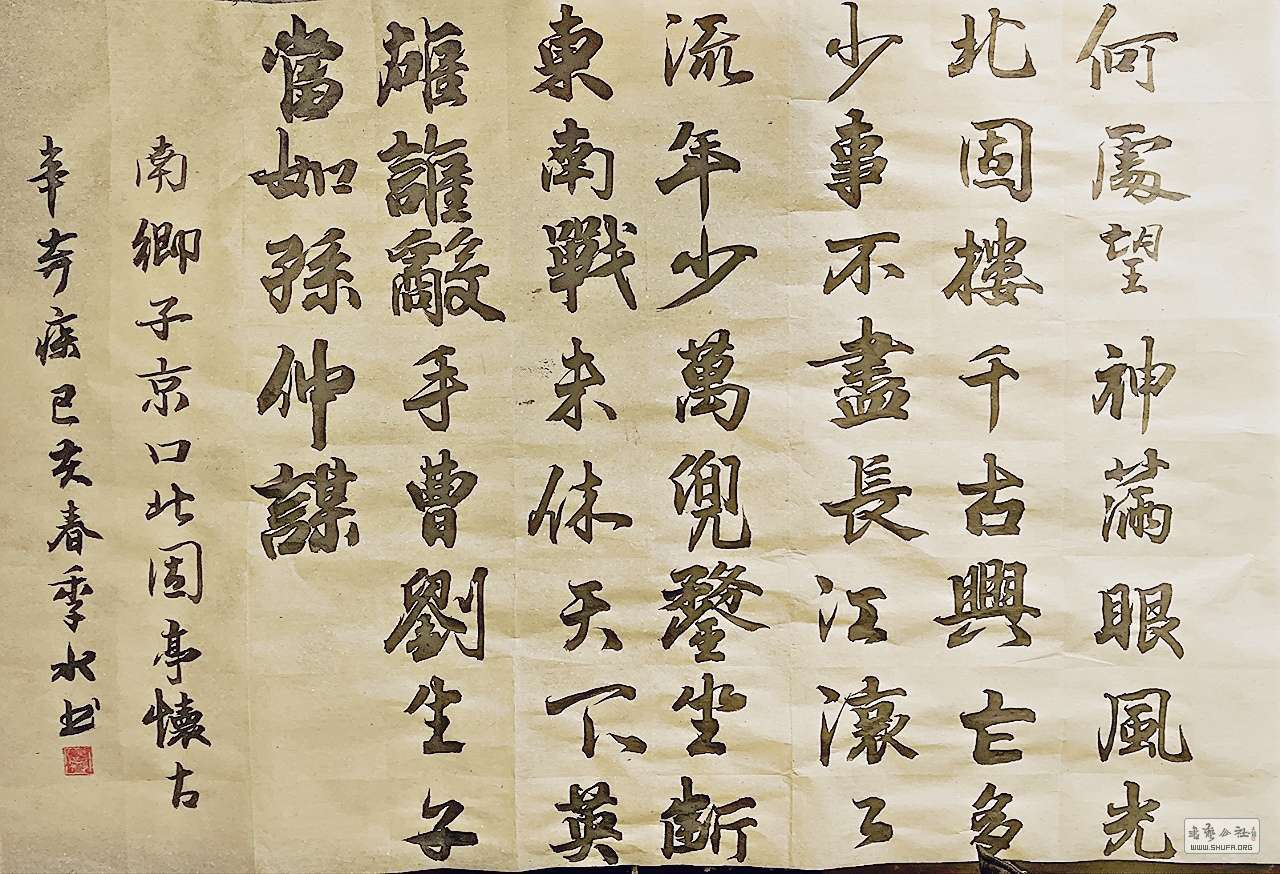 何處望神滿眼風光
北固樓千古興亡多
少事不盡長江滾〻
流年少萬兜鍪坐斷
東南戰未休天下英
雄誰敵手曹劉生子
當如孫仲謀
南鄉子京口北固亭懷古
辛弃疾己亥春季水书
WWW.SHUFA.ORG